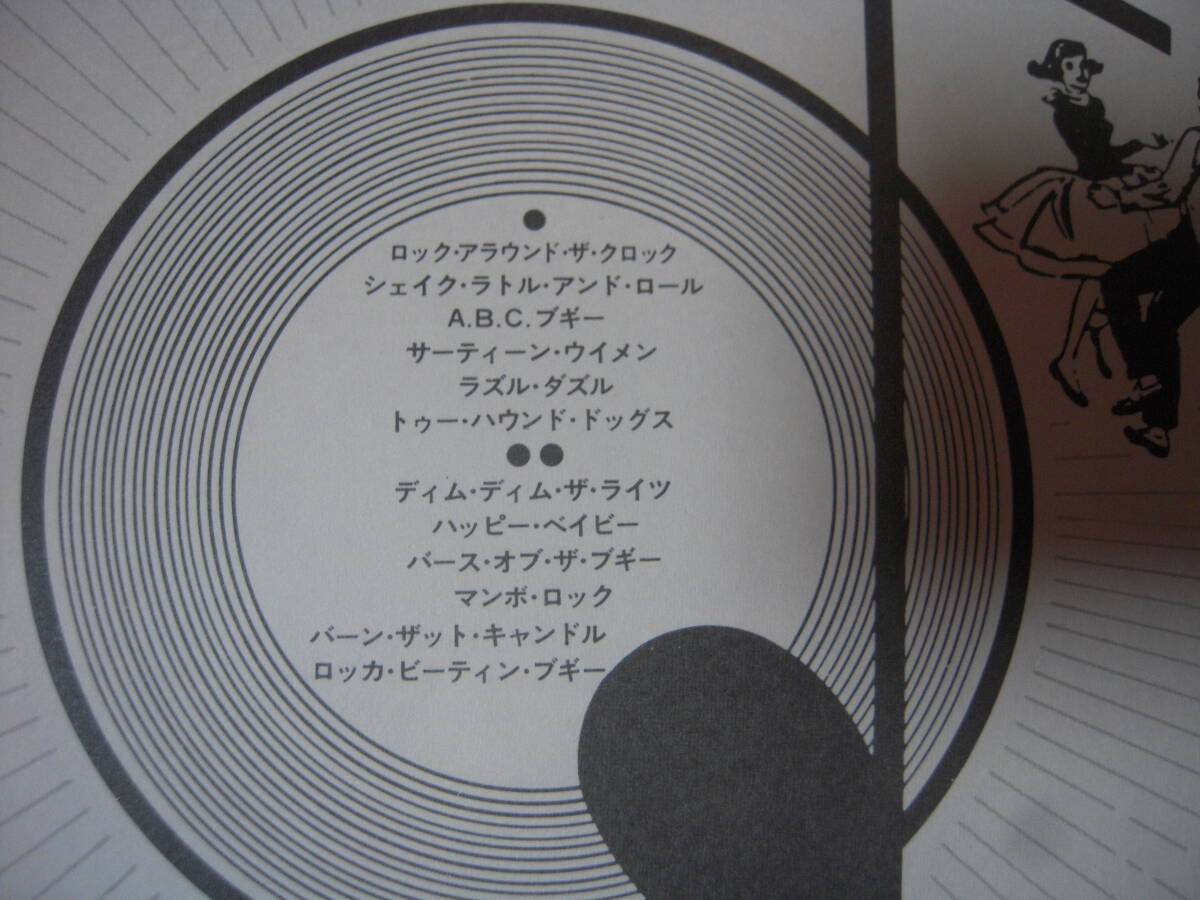 ●
ロック・アラウンド・ザ・クロック
シェイク・ラトル・アンド・ロール
A.B.C.ブギー
サーティーン・ウイメン
ラズル・ダズル
トゥー・ハウンド・ドッグス
●●
ディム・ディム・ザ・ライツ
ハッピー・ベイビー
バース・オブ・ザ・ブギー
マンボ・ロック
バーン・ザット・キャンドル
ロッカ・ビーティン・ブギー